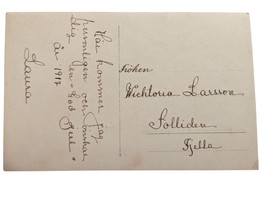 Här kommer jag
personligen och önskar
Dig en "God Jul"
år 1917
Laura
Fröken
Wicktoria Larsson
Solliden
Fjella